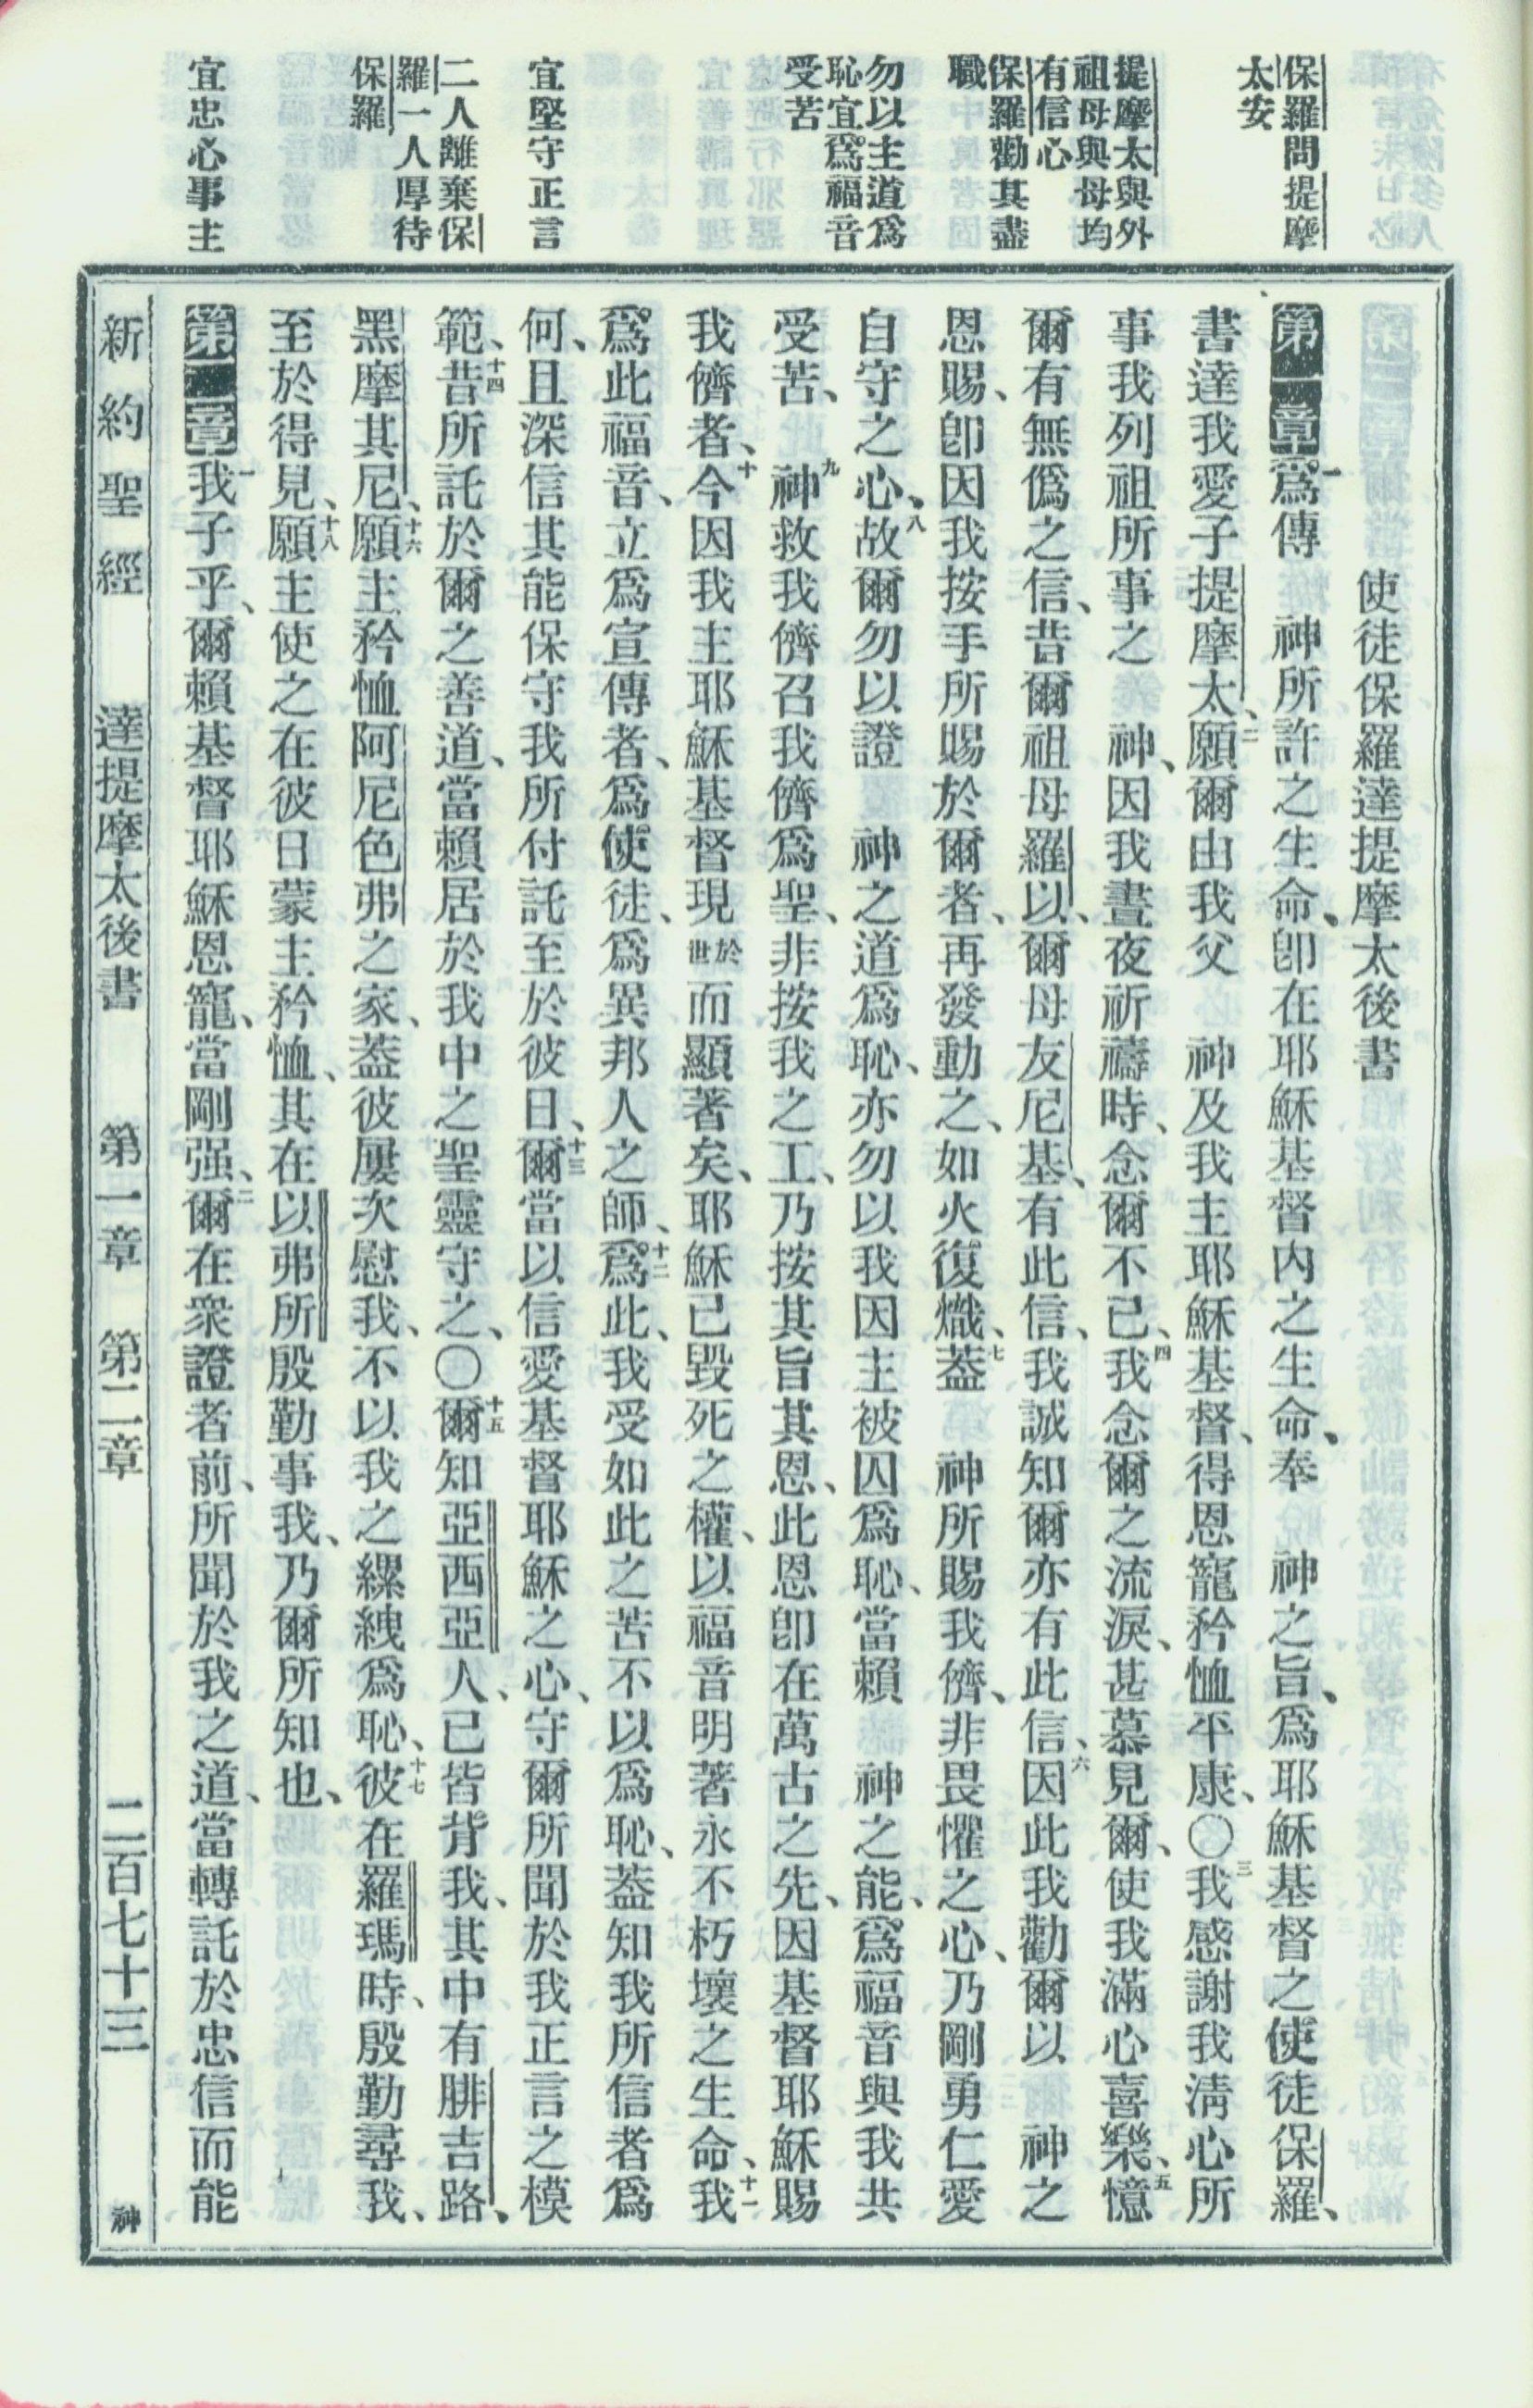 保羅問提摩
太安
提摩太與外
祖母與母均
有信心
保羅勸其盡
職
勿以主道爲
恥宜爲福音
受苦
宜堅守正言
二人離棄保
羅一人厚待
保羅
宜忠心事主
使徒保羅達提摩太後書
第一章一爲傳　神所許之生命、卽在耶穌基督內之生命、奉　神之旨、爲耶穌基督之使徒保羅、
書達我愛子提摩太、二願爾由我父　神及我主耶穌基督、得恩寵矜恤平康、〇三我感謝我淸心所
事我列祖所事之　神、因我晝夜祈禱時、念爾不已、四我念爾之流淚、甚慕見爾、使我滿心喜樂、五憶
爾有無僞之信、昔爾祖母羅以、爾母友尼基、有此信、我誠知爾亦有此信、六因此我勸爾以　神之
恩賜、卽因我按手所賜於爾者、再發動之、如火復熾、七蓋　神所賜我儕、非畏懼之心、乃剛勇仁愛
自守之心、八故爾勿以證　神之道爲恥、亦勿以我因主被囚爲恥、當賴　神之能、爲福音與我共
受苦、九神救我儕召我儕爲聖、非按我之工、乃按其旨其恩、此恩卽在萬古之先、因基督耶穌賜
我儕者、十今因我主耶穌基督現於世而顯著矣、耶穌已毀死之權、以福音明著永不朽壞之生命、十一我
爲此福音、立爲宣傳者、爲使徒、爲異邦人之師、十二爲此、我受如此之苦不以爲恥、蓋知我所信者爲
何、且深信其能保守我所付託至於彼日、十三爾當以信愛基督耶穌之心、守爾所聞於我正言之模
範、十四昔所託於爾之善道、當賴居於我中之聖靈守之、〇十五爾知亞西亞人、已皆背我、其中有腓吉路、
黑摩其尼、十六願主矜恤阿尼色弗之家、蓋彼屢次慰我、不以我之縲絏爲恥、十七彼在羅瑪時、殷勤尋我、
至於得見、十八願主使之在彼日蒙主矜恤、其在以弗所殷勤事我、乃爾所知也、
第二章一我子乎、爾賴基督耶穌恩寵、當剛强、二爾在衆證者前、所聞於我之道、當轉託於忠信而能
新約聖經　達提摩太後書　第一章　第二章　二百七十三　神